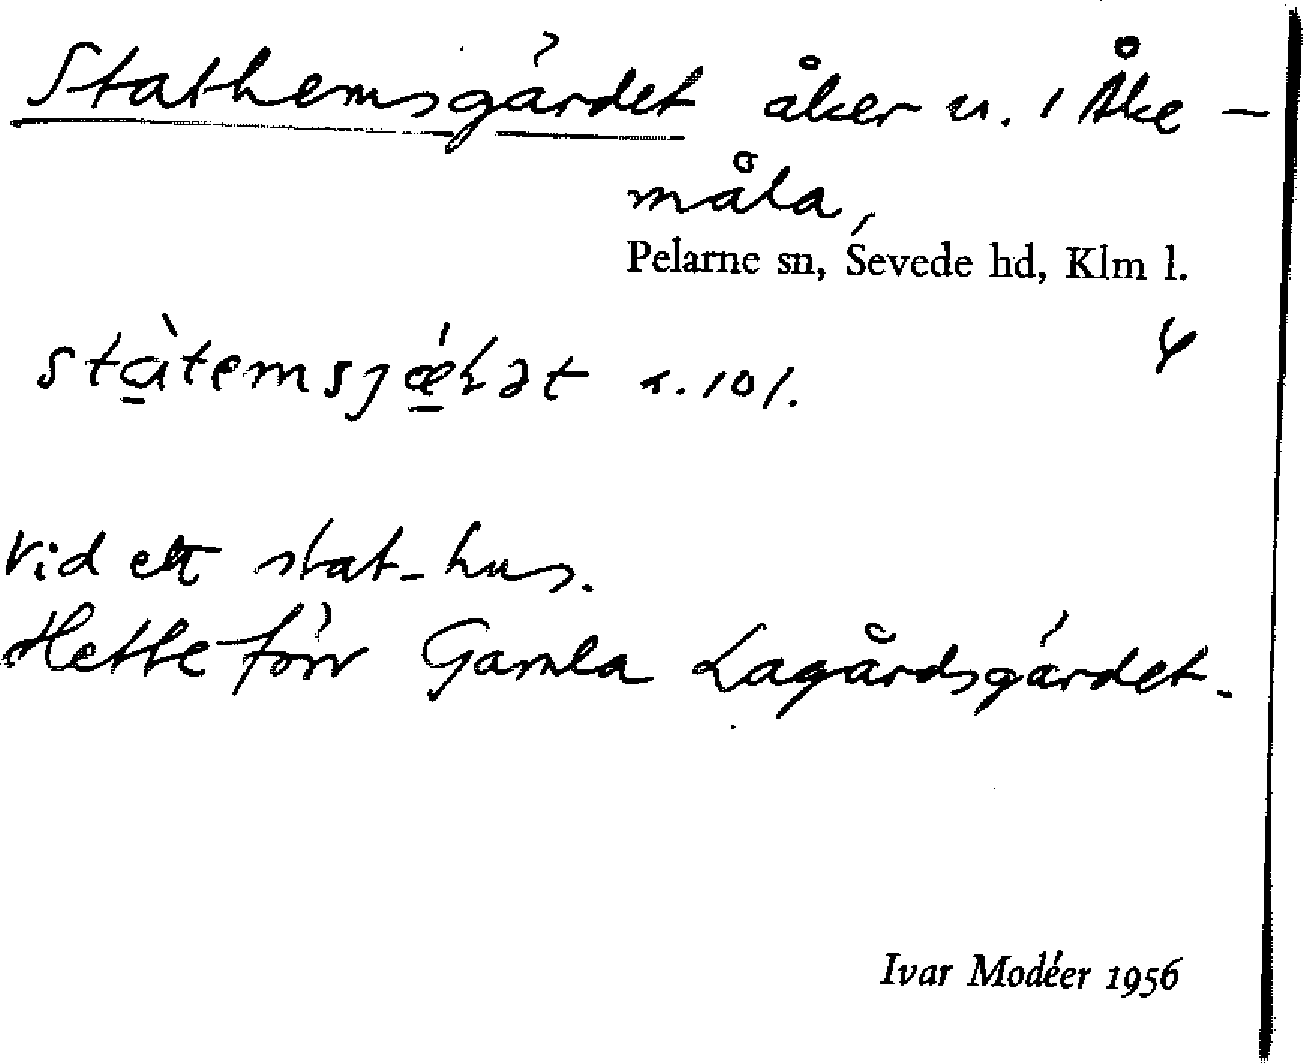 Stathemsgärdet åker n. 1 Åke-
måla,
Pelarne sn, Sevede hd, Klm l.
stàtemsjǽɽət 101.
Vid ett stat-hus.
Hette förr Gamla Lagårdsgärdet.
Ivar Modéer 1956